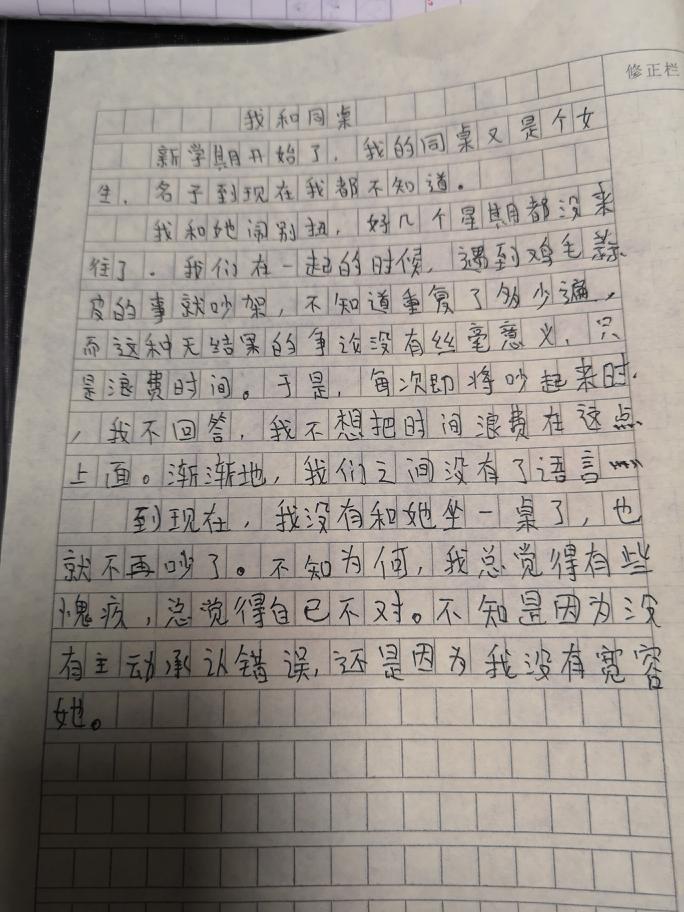 修正栏
我和同桌
新学期开始了，我的同桌又是个女
生，名子到现在我都不知道。
我和她闹别扭，好几个星期都没来
往了。我们在一起的时候，遇到鸡毛蒜
皮的事就吵架，不知道重复了多少遍，
而这种无结果的争论没有丝毫意义，只
是浪费时间。于是，每次即将吵起来时
，我不回答，我不想把时间浪费在这点
上面。渐渐地，我们之间没有了语言……
到现在，我没有和她坐一桌了，也
就不再吵了。不知为何，我总觉得有些
愧疚，总觉得自已不对。不知是因为没
有主动承认错误，还是因为我没有宽容
她。